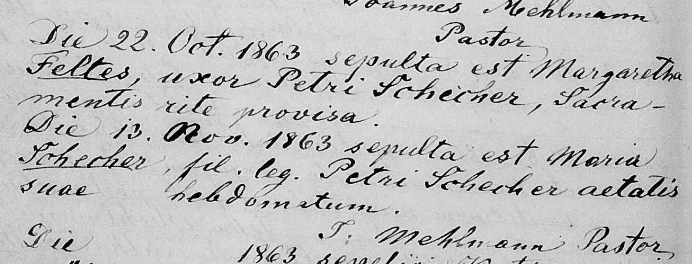 Joannes Mehlmann
Pastor
Die 22. Oct. 1863 sepulta est Margaretha
Feltes, uxor Petri Schecher, Sacra-
mentis rite provisa.
Die 13. Nov. 1863 sepulta est Maria
Schecher, fil. leg. Petri Schecher aetatis
suae hebdomatum.
J. Mehlmann Pastor
Die 1863